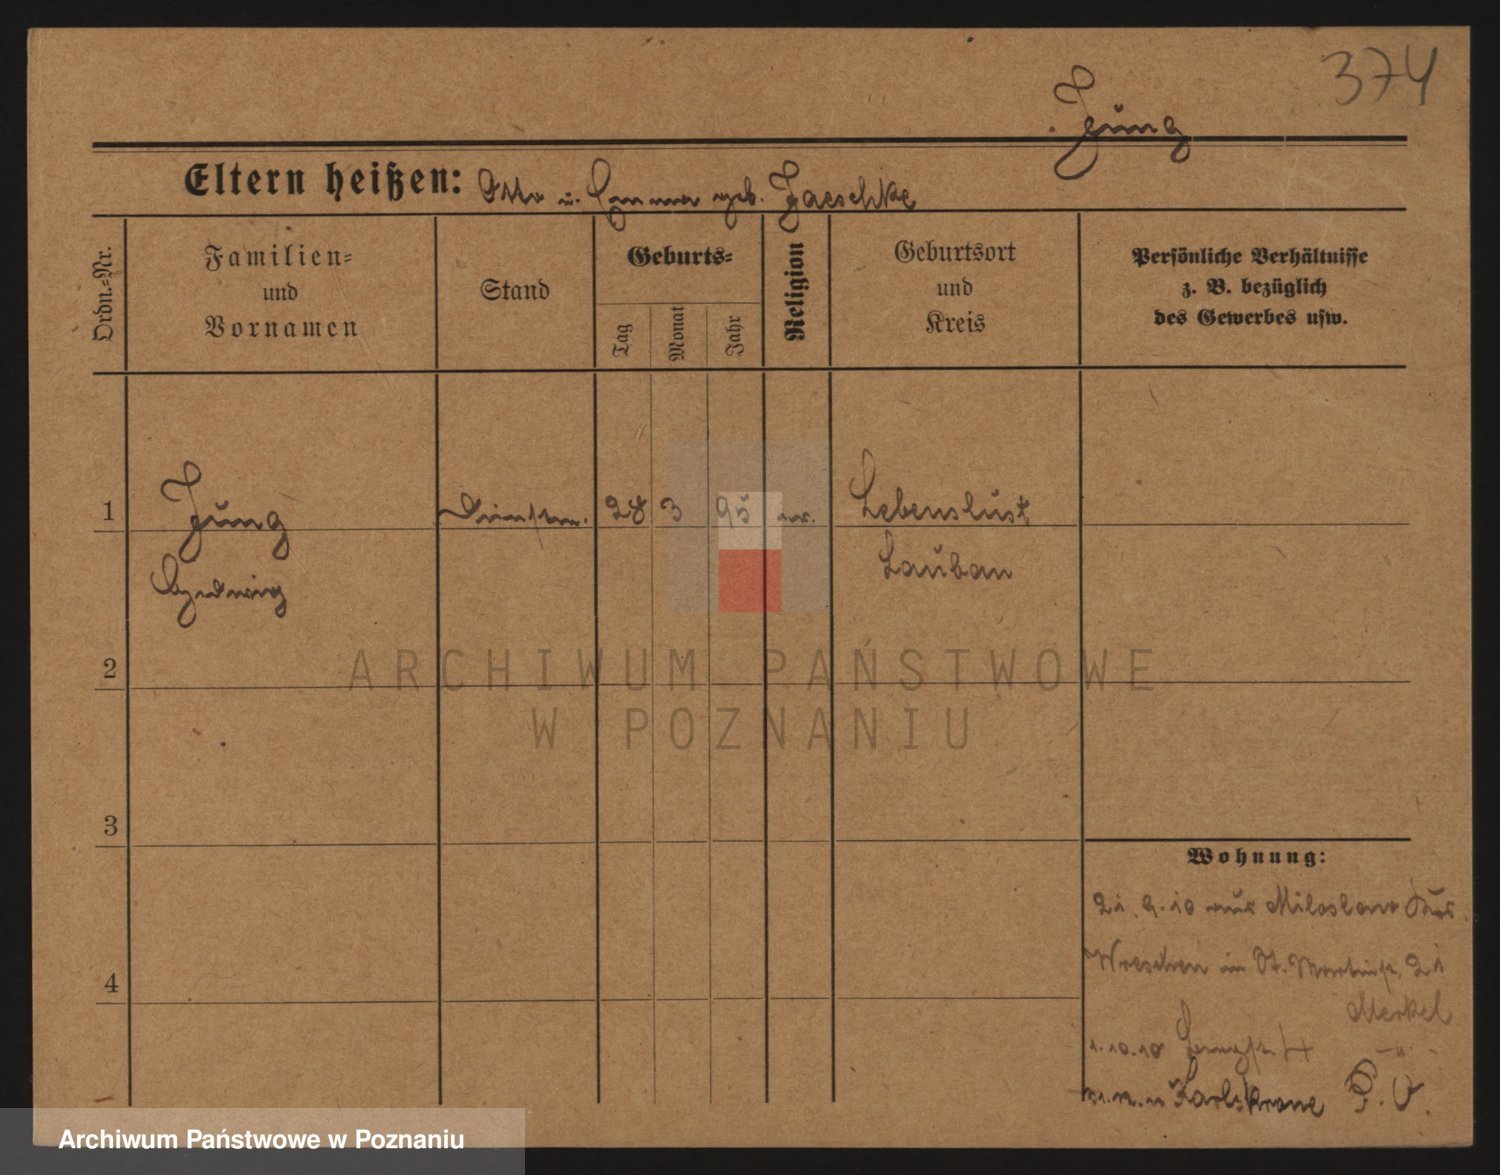 374
Jung
Eltern heißen: Otto u. Emma geb. Jaeschke
Ordn.-Nr.
Familien-
und
Vornamen
Stand
Geburts-
Tag
Monat
Jahr
Religion
Geburtsort
und
Kreis
Persönliche Verhältnisse
z. B. bezüglich
des Gewerbes usw.
1
Jung
28 3 95 ev.
Lebenslust
Hedwig
Lauban
2
ARCHIWUM PAŃSTWOWE
W POZNANIU
3
Wohnung:
21.9.10 aus Miloslaw Krs.
Wreschen in St. Martinstr. 21
4
Merkel
1.10.10
Karlskrone P. O.
Archiwum Państwowe w Poznaniu